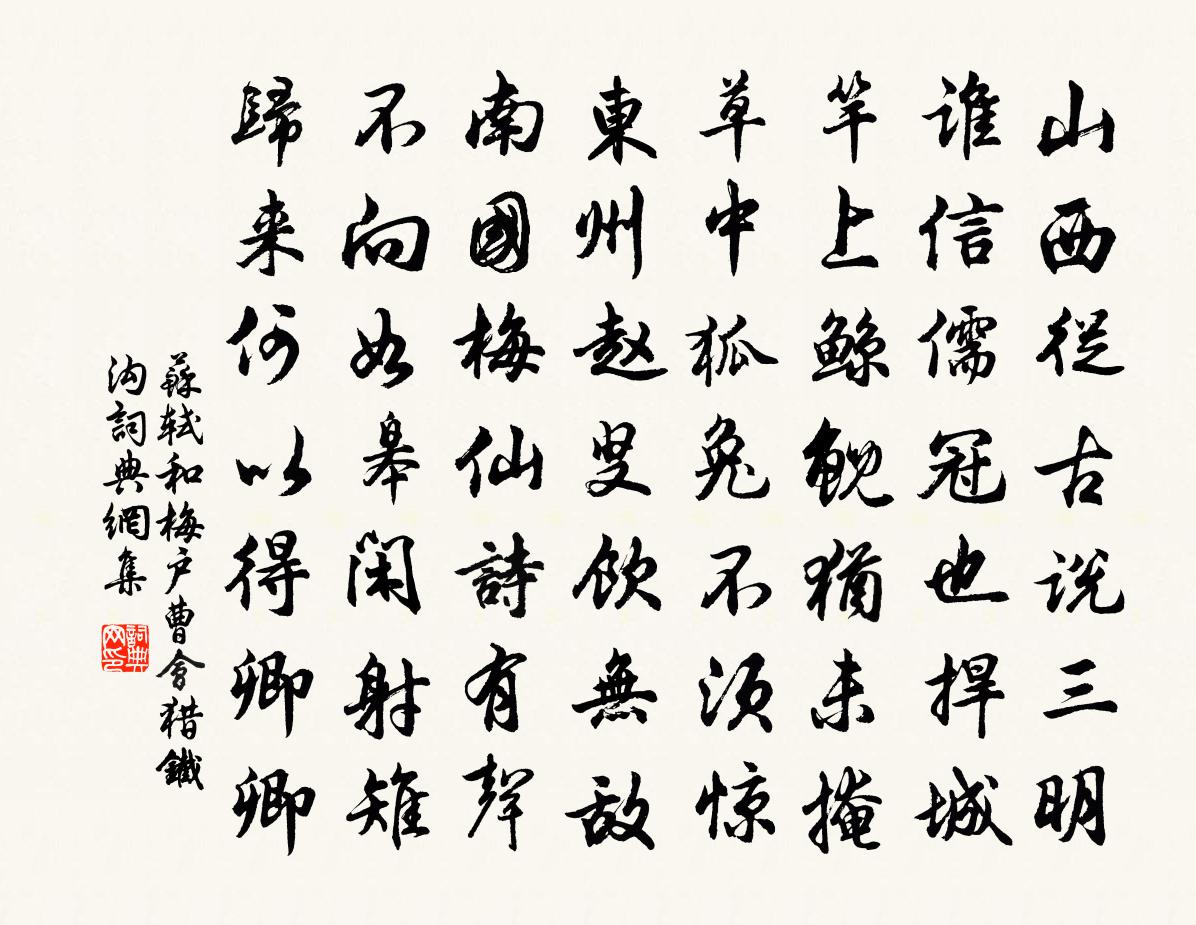 山西從古説三明
誰信儒冠也捍城
竿上鯨鯢猶未掩
草中狐兔不須惊
東州趙叟飲無敵
南國梅仙詩有聲
不向如皋閑射雉
歸来何以得卿卿
蘇軾和梅户曹會猎鐵
沟詞典網集
詞典网印